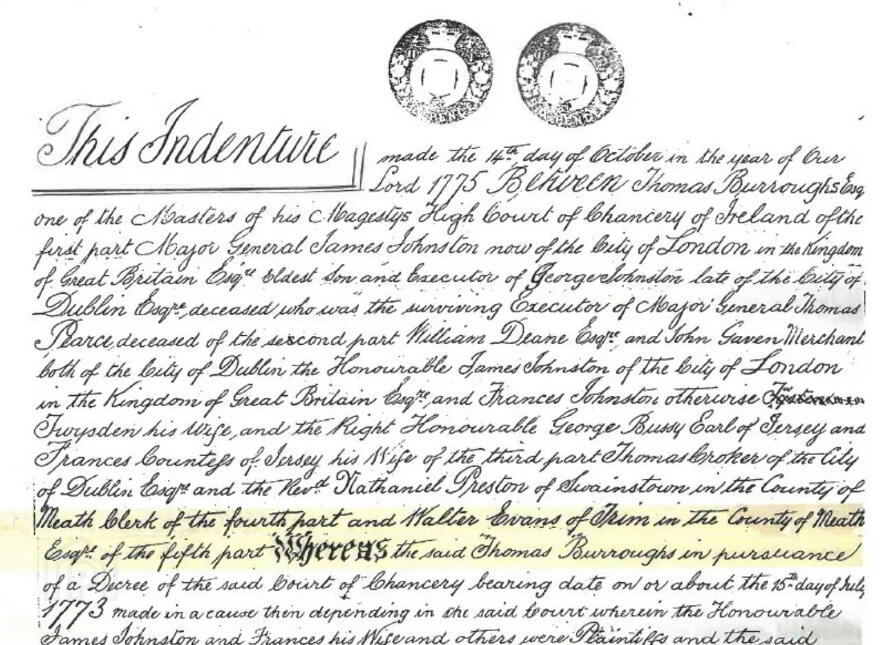 This Indenture made the 14th day of October in the year of Our
Lord 1775 Between Thomas Burroughs Esq
one of the Masters of his Magestys High Court of Chancery of Ireland of the
first part Major General James Johnston now of the City of London in the Kingdom
of Great Britain Esqre Eldest Son and Executor of George Johnston late of the City of
Dublin Esqre, deceased who was the surviving Executor of Major General Thomas
Pearce, deceased of the second part William Deane Esqre, and John Gaven Merchant
both of the City of Dublin the Honourable James Johnston of the City of London
in the Kingdom of Great Britain Esqre, and Frances Johnston otherwise
Twysden his Wife, and the Right Honourable George Bussy Earl of Jersey and
Frances Countess of Jersey his Wife of the third part Thomas Croker of the City
of Dublin Esqre and the Revd Nathaniel Preston of Swainstown in the County of
Meath Clerk of the fourth part and Walter Evans of Trim in the County of Meath
Esqr. of the fifth part Whereas the said Thomas Burroughs in pursuance
of a Decree of the said Court of Chancery bearing date on or about the 15th day of July
1773 made in a cause then depending in the said Court wherein the Honourable
James Johnston and Frances his Wife and others were Plaintiffs and the said